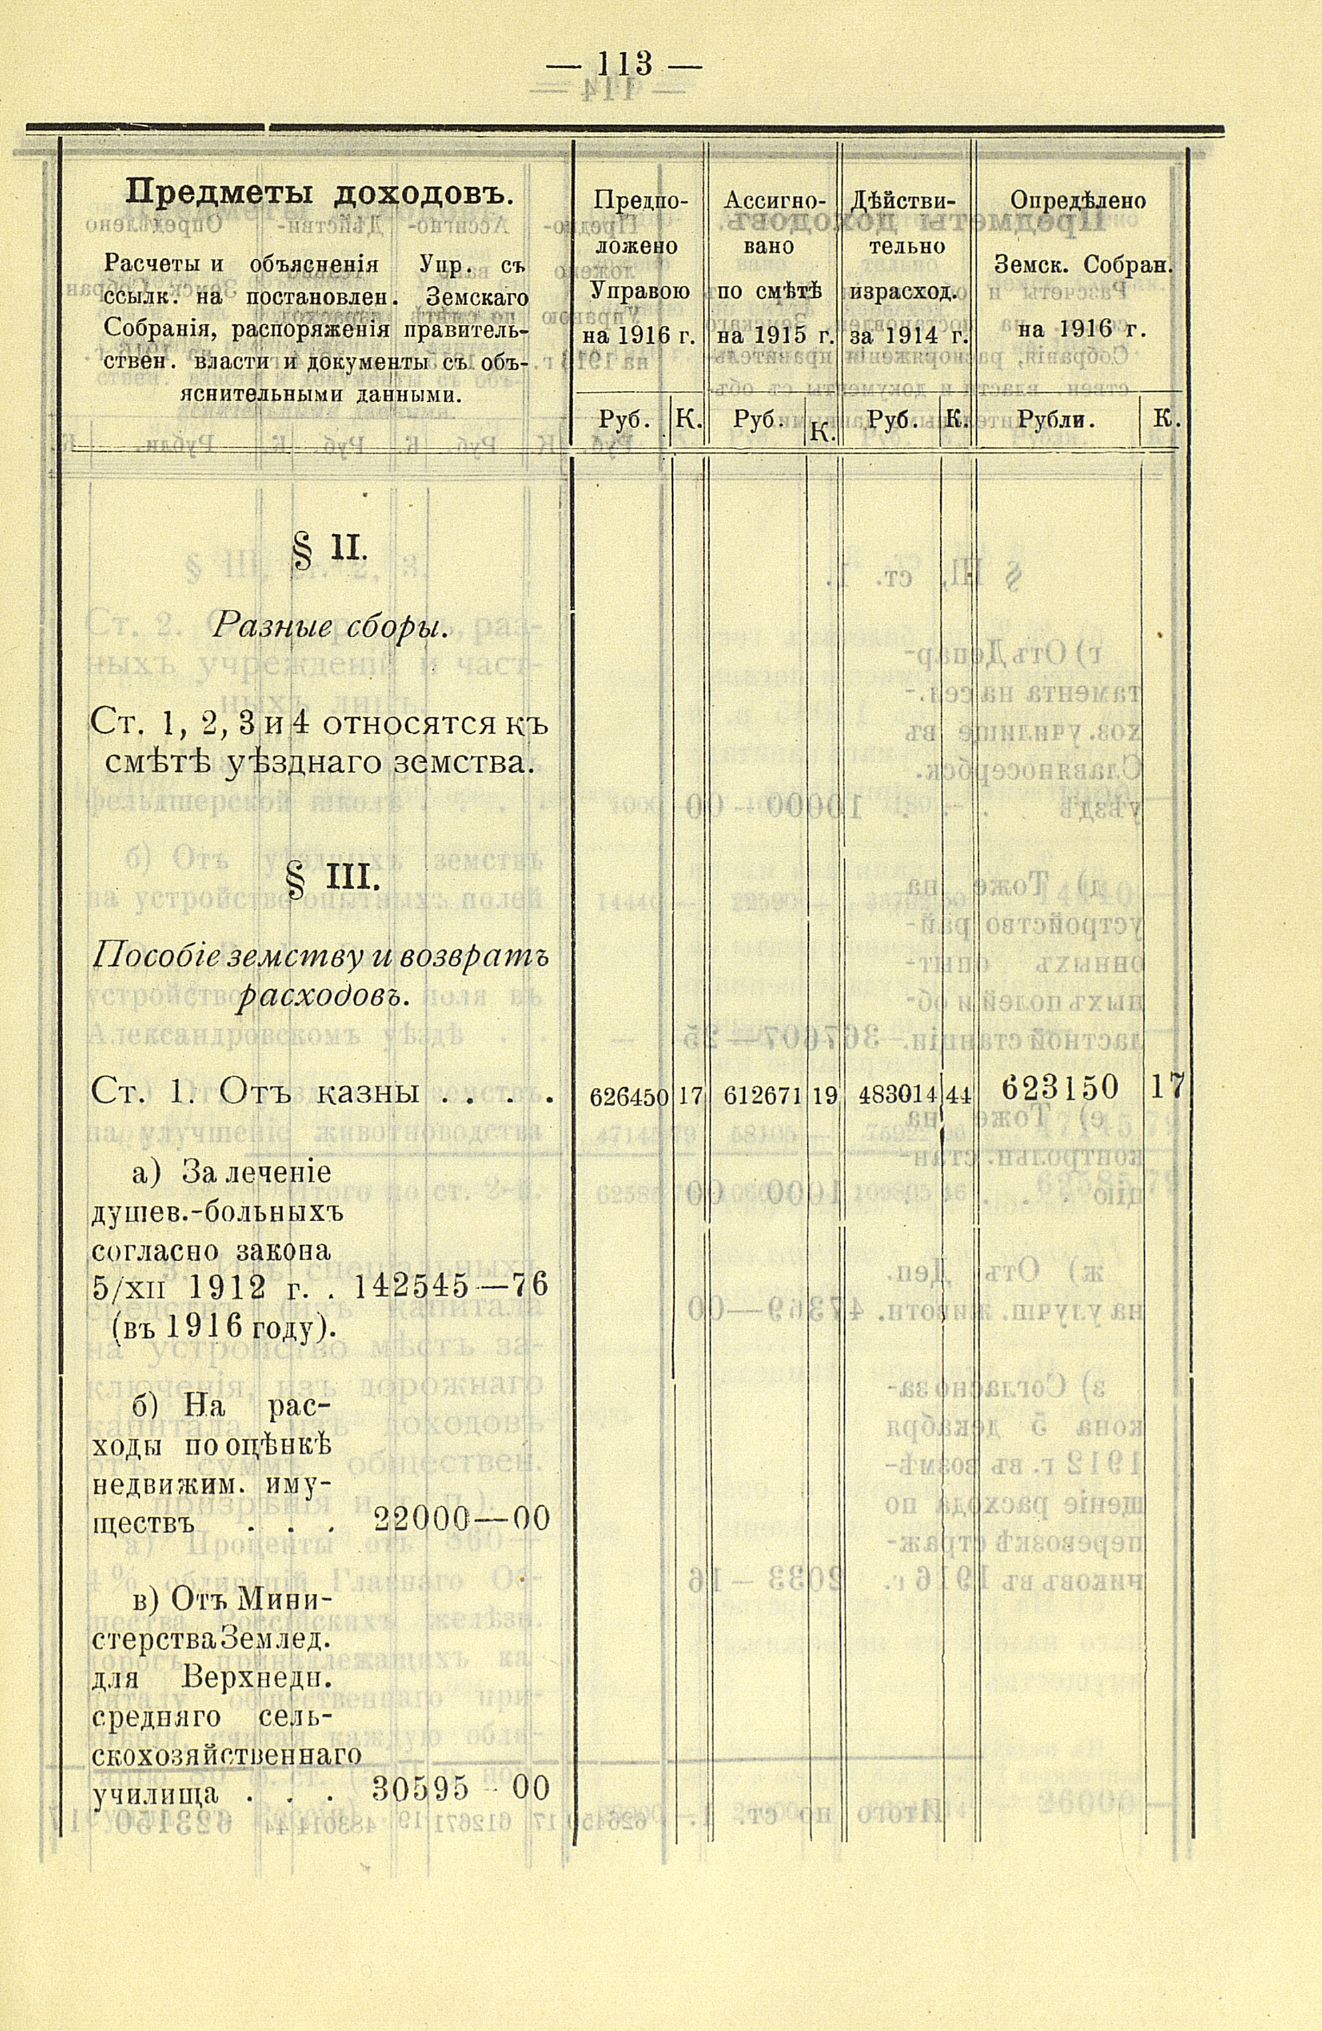 — 113 —
Предметы доходовъ.
Расчеты и объясненія Упр. съ
ссылк. на постановлен. Земскаго
Собранія, распоряженія правитель-
ствен. власти и документы съ объ-
яснительными данными.
Предпо-
ложено
Управою
на 1916 г.
Ассигно-
вано
по смѣтѣ
на 1915 г.
Дѣйстви-
тельно
израсход.
за 1914 г.
Опредѣлено
Земск. Собран.
на 1916 г.
Руб. К. Руб. К. Руб. К. Рубли. К.
§ II.
Разные сборы.
Ст. 1, 2, 3 и 4 относятся къ
смѣтѣ уѣзднаго земства.
§ III.
Пособіе земству и возвратъ
расходовъ.
Ст. 1. Отъ казны . . . . 626450 17 612671 19 483014 44 623150 17
а) За леченіе
душев.-больныхъ
согласно закона
5/XII 1912 г. . 142545—76
(въ 1916 году).
б) На рас-
ходы по оцѣнкѣ
недвижим. иму-
ществъ . . . 22000—00
в) Отъ Мини-
стерства Землед.
для Верхнедн.
средняго сель-
скохозяйственнаго
училища . . . 30595—00